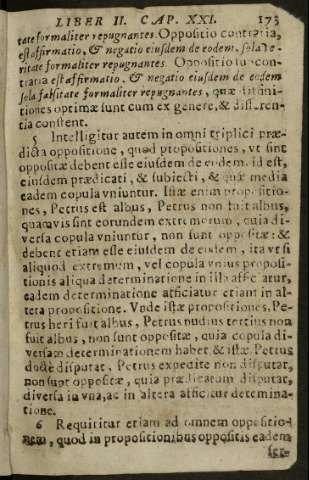 LIBER II. CAP. XXI. 173
tate formaliter repugnantes. Oppositio contraria,
est affirmatio, & negatio eiusdem de eodem, sola ve-
ritate formaliter repugnantes. Oppositio subcon-
traria est affirmatio, & negatio eiusdem de eodem
sola falsitate formaliter repugnantes, quæ difini-
tiones optimæ sunt cum ex genere, & differen-
tia constent.
5 Intelligitur autem in omni triplici præ-
dicta oppositione, quod propositiones, vt sint
oppositæ debent esse eiusdem de eodem, id est,
eiusdem prædicati, & subiecti, & quæ media
eadem copula vniuntur. Istæ enim propositio-
nes, Petrus est albus, Petrus non fuit albus,
quamvis sint eorundem extremorum, quia di-
versa copula vniuntur, non sunt oppositæ: &
debent etiam esse eiusdem de eodem, ita vt si
aliquod extremum, vel copula vnius proposi-
tionis aliqua determinatione in illa afficiatur,
eadem determinatione afficiatur etiam in al-
tera propositione. Vnde istæ propositiones, Pe-
trus heri fuit albus, Petrus nudius tertius non
fuit albus, non sunt oppositæ, quia copula di-
versam determinationem habet, & istæ. Petrus
docte disputat, Petrus expedite non disputat,
non sunt oppositæ, quia prædicatum disputat,
diversa in vna, ac in altera afficitur determina-
tione.
6 Requiritur etiam ad omnem oppositio-
nem, quod in propositionibus oppositis eadem